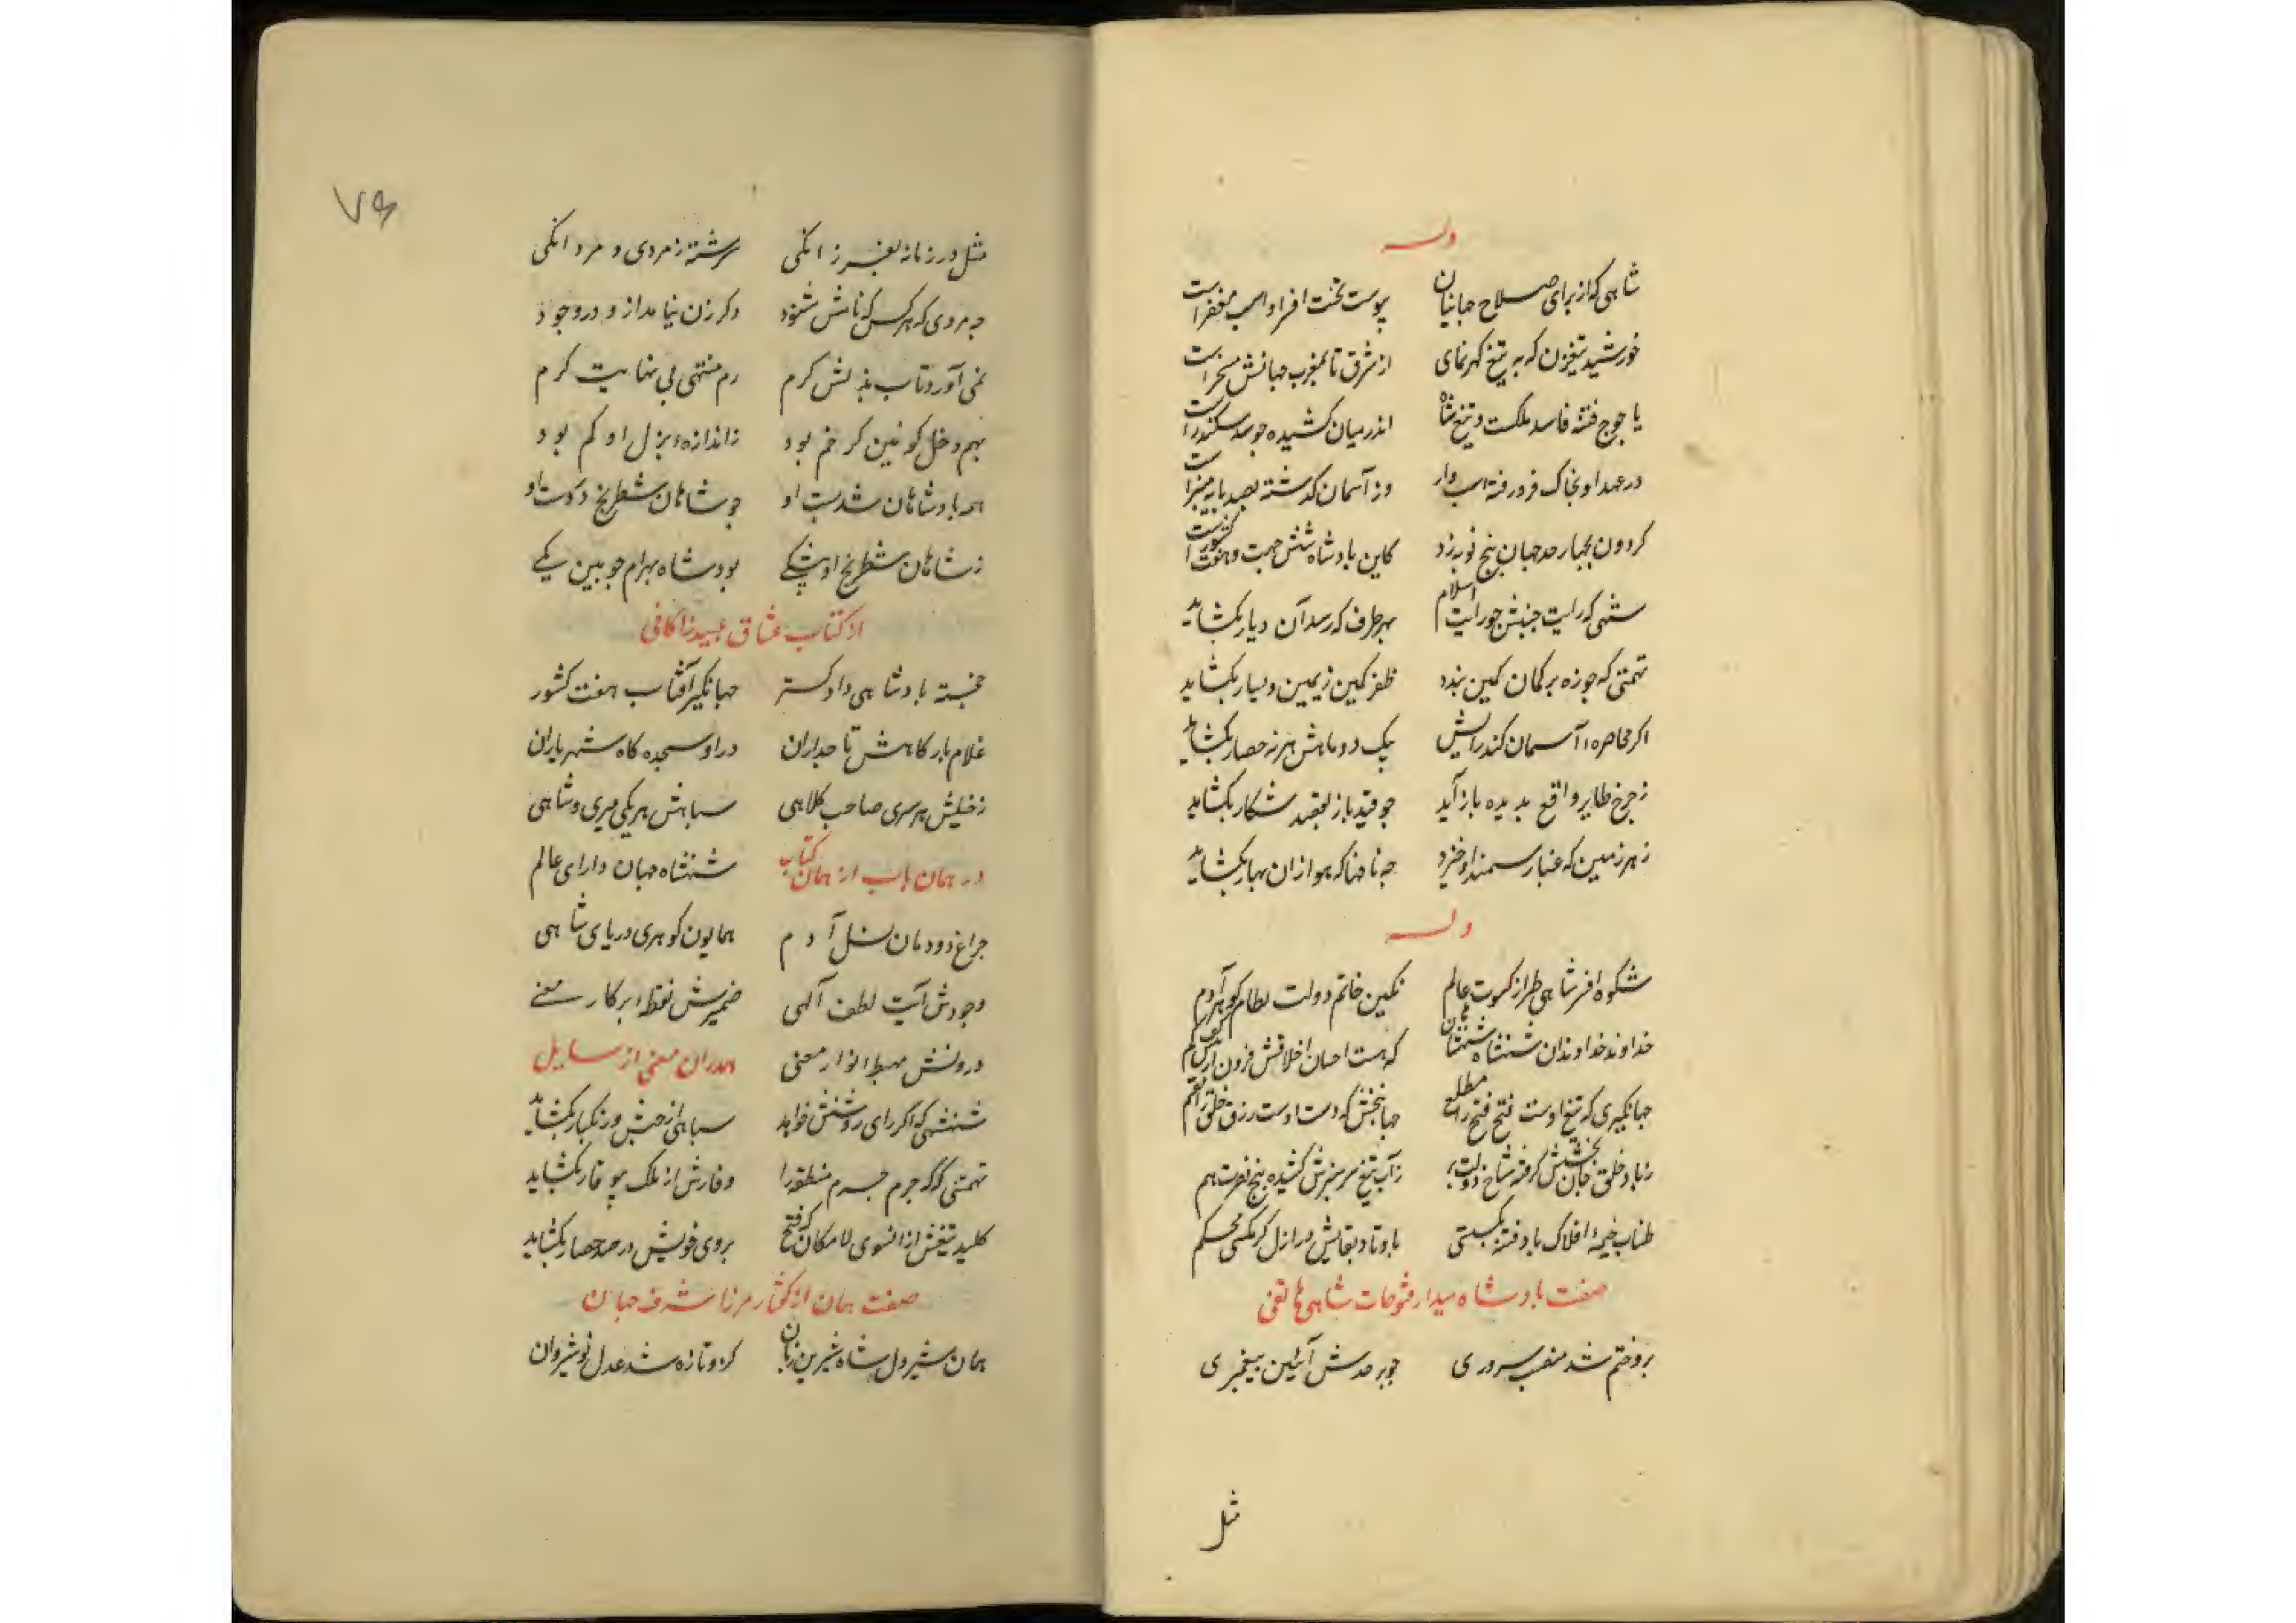 وله
شاهی که از برای صلاح جهانیان پیوست تخت افسر و اسب مغفر است
خورشید تیغ‌زن که به تیغ گهرنمای از شرق تا بمغرب جهانش مسخر است
یاجوج فتنه فاسد ملکست و تیغ شاه اندر میان کشیده چو سد سکندر است
در عهد او بخاک فرو رفته اسب دار وز آسمان گذشته بصد پایه منبر است
گردون بچار حد جهان پنج نوبه زد کاین پادشاه شش جهت و هفت کشور است
شهی که رایت جنبش چو رایت اسلام بهر طرف که رسد آن دیار بگشاید
تهمتنی که چو زه بر کمان کین بندد ظفر کمین ز یمین و یسار بگشاید
اگر محاصرهٔ آسمان کند رایش بیک دو ماهش هر نه حصار بگشاید
ز چرخ طایر واقع بدیده باز آید چو قید باز بقصد شکار بگشاید
ز هر زمین که غبار سمند او خیزد چه نافها که هوا زان بهار بگشاید
وله
شکوه افسر شاهی طراز کسوت عالم نگین خاتم دولت نظام گوهر آدم
خداوند خداوندان شهنشاه شهنشاهان که هست احسان اخلاقش فزون از
جهانگیری که تیغ اوست فتح فتح را مطلع جهانبخشی که دست اوست رزق خلق را مقسم
ز باد خلق جان بخشش گرفته شاخ دولت بر ز آب تیغ سرسبزش کشیده بیخ نصرت هم
طناب خیمهٔ افلاک با دفتهٔ بگسستی با وتاد بقایش در ازل گر نکستی محکم
صفت پادشاه بیدار فتوحات شاهی هاتفی
برو ختم شد منصب سروری چو بر جدش آئین پیغمبری
مثل
۷۶
مثل در زمانه بفرزانگی سرشته ز مردی و مردانگی
چه مردی که هر کس که نامش شنود دگر زن نیامد ازو در وجود
نمی آورد تاب بذلش کرم رم منتهی بی نهایت کرم
بهم دخل کونین گر ضم بود ز اندازهٔ بذل او کم بود
همه پادشاهان شد پست او چو شاهان شطرنج در دست او
ز شاهان شطرنج او بیشکی بود شاه بهرام چوبین یکی
از کتاب عشاق عبید زاکانی
خجسته پادشاهی دادگستر جهانگیر آفتاب هفت کشور
غلام بارگاهش تاجداران در او سجده گاه شهریاران
ز خیلش هر سری صاحب کلاهی سپاهش هر یکی میری و شاهی
در همان باب از همان کتاب شهنشاه جهان دارای عالم
چراغ دودمان نسل آدم همایون گوهری دریای شاهی
وجودش آیت لطف آلهی ضمیرش نقطهٔ پرگار معنی
درونش مهبط انوار معنی هم در آن معنی از سایل
شهنشهی که اگر رای روشنش خواهد سپاهی از حبش و زنگبار بگشاید
تهمتنی که گه جرم جرم منطقه را وقارش از ملک بیوقار بگشاید
کلید تیغش از آنسوی لامکان که فتح بروی خویش در صد حصار بگشاید
صفت همان از گفتار مرزا شرف جهان
همان شیردل شاه شیرین زبان کزو تازه شد عدل نوشیروان